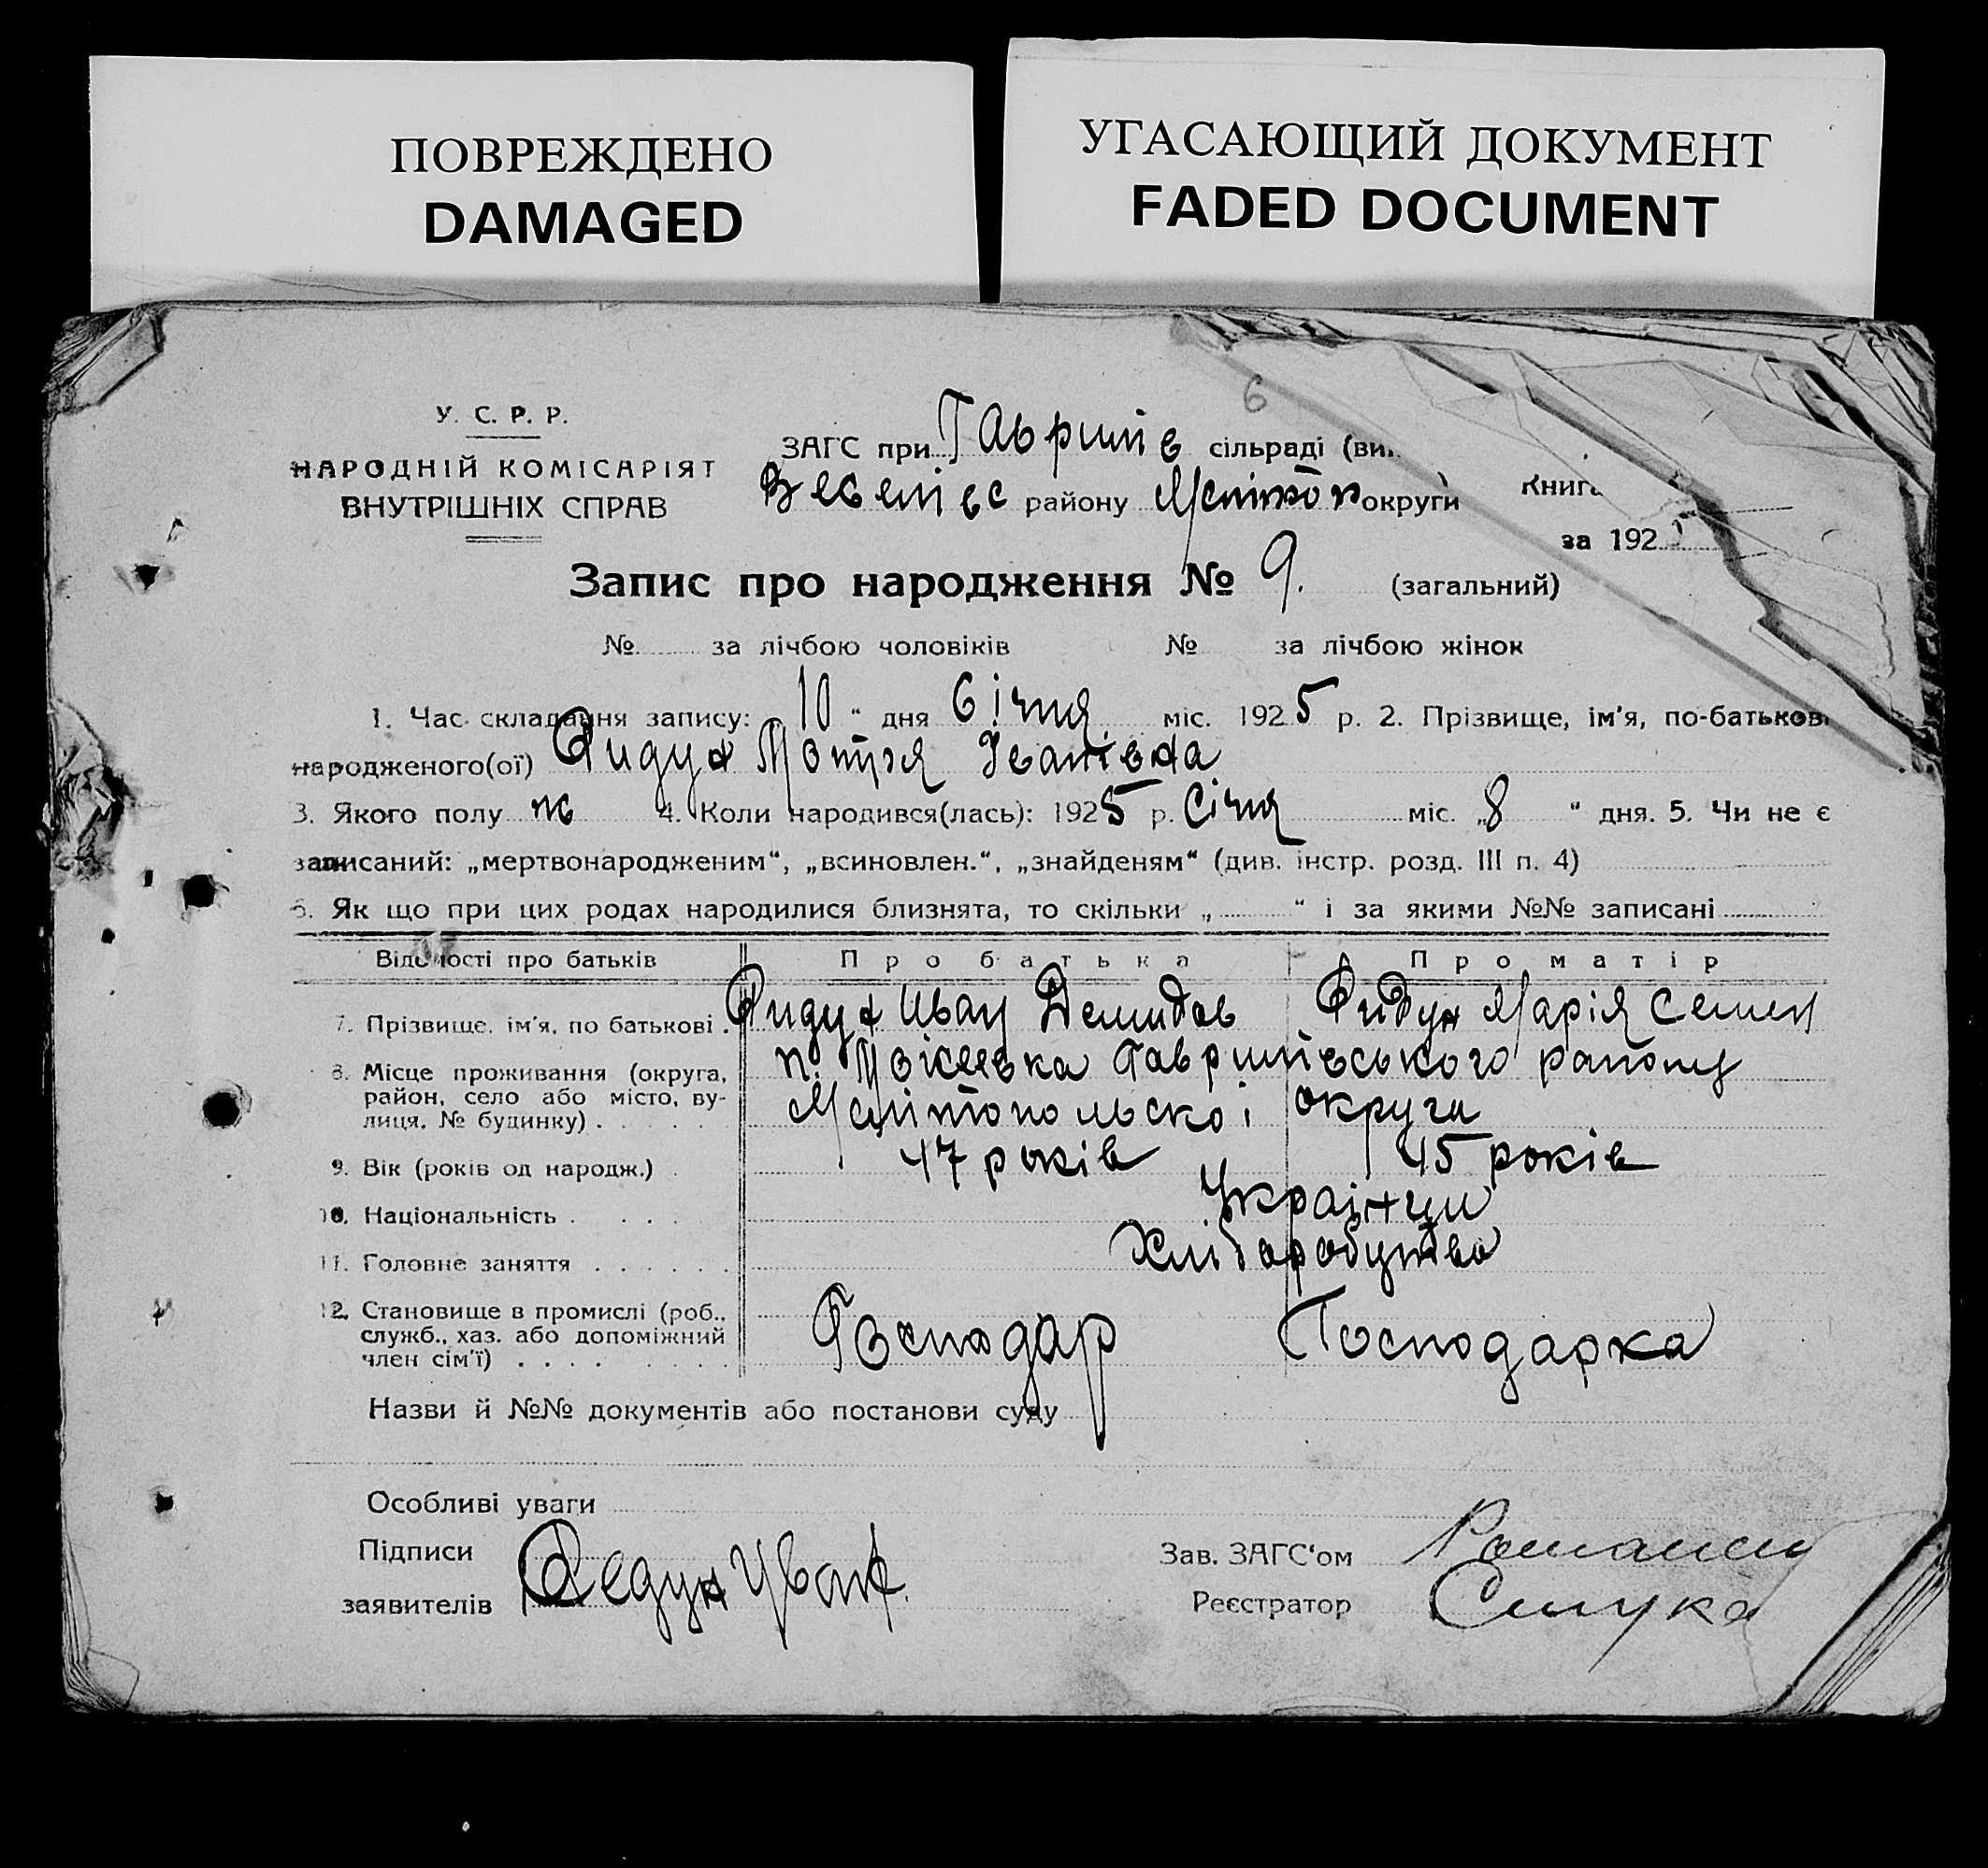 ПОВРЕЖДЕНО
DAMAGED
УГАСАЮЩИЙ ДОКУМЕНТ
FADED DOCUMENT
6
У. С. Р. Р.
НАРОДНІЙ КОМІСАРІЯТ
ВНУТРІШНІХ СПРАВ
ЗАГС при Гаврилів сільраді (вик
району Мелітоп округи
Книга
за 192
Запис про народження № 9. (загальний)
№ за лічбою чоловіків № за лічбою жінок
1. Час складання запису: 10 “ дня Січня міс. 1925 р. 2. Прізвище, ім'я, по-батькові
народженого(ої) Фидун Мотря Іванівна
3. Якого полу ж 4. Коли народився(лась): 1925 р. Січня міс. „8 “ дня. 5. Чи не є
записаний: „мертвонародженим“, „всиновлен.“, „знайденям“ (див. інстр. розд. III п. 4)
6. Як що при цих родах народилися близнята, то скільки „ “ і за якими №№ записані
Відомості про батьків Про батька Про матір
7. Прізвище, ім'я, по батькові . Фидун Иван Демидов Фидун Марія Семен
8. Місце проживання (округа,
район, село або місто, ву-
лиця, № будинку) . . . . .
п. Мокіевка Гаврилівського району
Мелітопольскоі округи
9. Вік (років од народж.) . 47 років 45 років
10. Національність . . . . Украінци
11. Головне заняття . . . . . . Хліборобство
12. Становище в промислі (роб.,
служб., хаз. або допоміжний
член сім'ї) . . . . . . . .
Господар Господарка
Назви й №№ документів або постанови суду
Особливі уваги
Підписи
заявителів Федун Иван
Зав. ЗАГС‘ом
Реєстратор